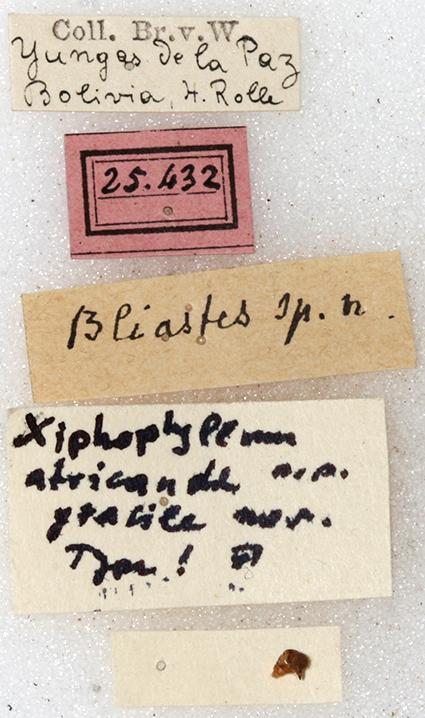 Coll. Br. v. W.
Yungas de la Paz
Bolivia, H. Rolle
25.432
Bliastes sp. n.
Xiphophyllum
n. n.
gracile
Typ!